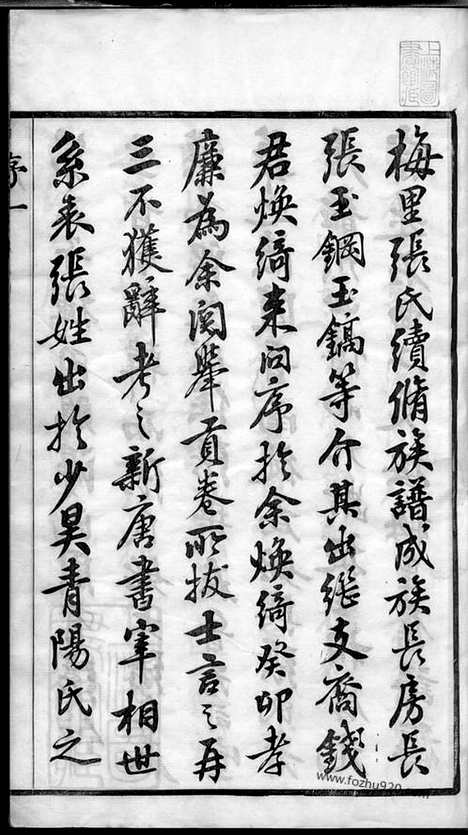 梅里張氏續脩族譜成族長房長
張玉鋼玉鎬等介其出繼支裔錢
君煥綺來問序於余煥綺癸卯孝
廉為余閱舉貢卷所拔士言之再
三不獲辭考之新唐書宰相世
系表張姓出於少昊青陽氏之
序一
www.fozhu920.com